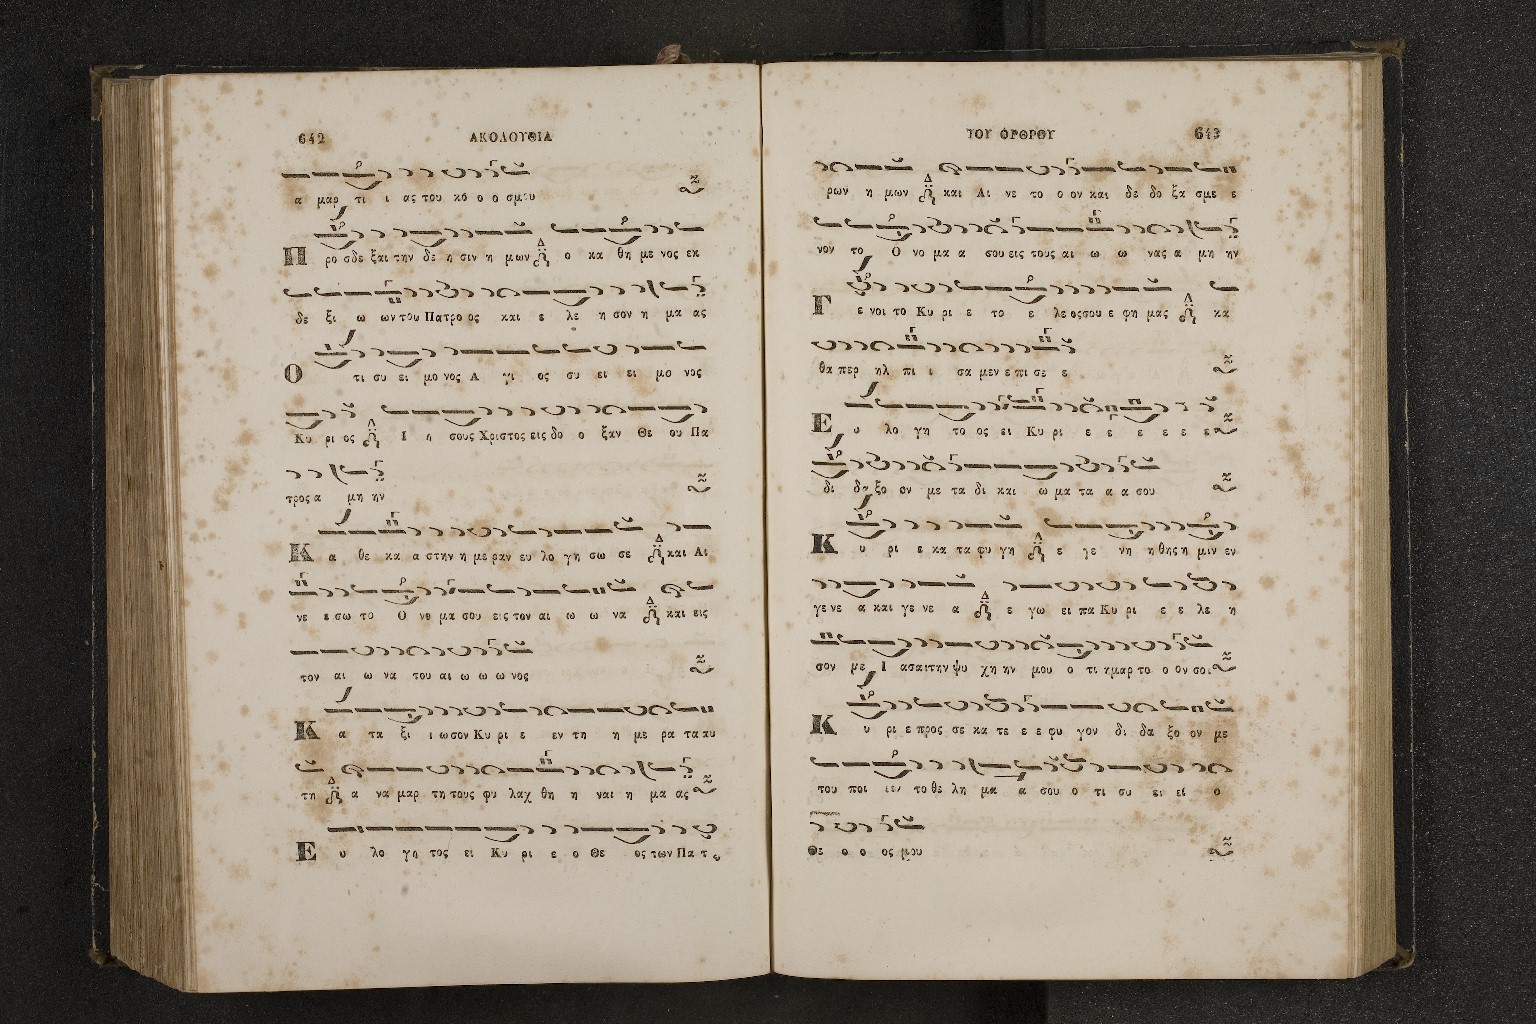 642 ΑΚΟΛΟΥΘΙΑ
α μαρ τι ι ας του κο ο ο σμου
Π ρο σδε ξαι την δε η σιν η μων ο κα θη με νος εκ
δε ξι ω ων του Πατρο ος και ε λε η σον η μα ας
Ο τι συ ει μο νος Α γι ος συ ει ει μο νος
Κυ ρι ος Ι η σους Χριστος εις δο ο ξαν Θε ου Πα
τρος α μη ην
Κ α θε κα α στην η με ραν ευ λο γη σω σε και Αι
νε ε σω το Ο νο μα σου εις τον αι ω ω να και εις
τον αι ω να του αι ω ω ω νος
Κ α τα ξι ι ω σον Κυ ρι ε εν τη η με ρα τα αυ
τη α να μαρ τη τους φυ λαχ θη η ναι η μα ας
Ε υ λο γη τος ει Κυ ρι ε ο Θε ος των Πα τ
ΤΟΥ ΟΡΘΡΟΥ 643
ρων η μων και Αι νε το ο ον και δε δο ξα σμε ε
νον το Ο νο μα α σου εις τους αι ω ω νας α μη ην
Γ ε νοι το Κυ ρι ε το ε λε ος σου ε φη μας κα
θα περ ηλ πι ι σα μεν ε πι σε ε
Ε υ λο γη το ος ει Κυ ρι ε ε ε ε ε ε
δι δα ξο ον με τα δι και ω μα τα α α σου
Κ υ ρι ε κα τα φυ γη ε γε νη η θης η μιν εν
γε νε α και γε νε α ε γω ει πα Κυ ρι ε ε λε η
σον με Ι ασαι την ψυ χη ην μου ο τι ημαρ το ο ον σοι
Κ υ ρι ε προς σε κα τε ε ε φυ γον δι δα ξο ον με
του ποι ιεν το θε λη μα α σου ο τι συ ει εί ο
Θε ο ο ος μου